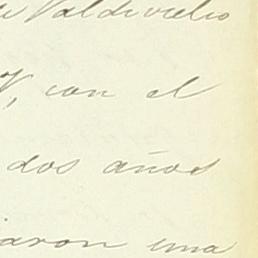 de Valdivielso
, con el
dos años
aron una